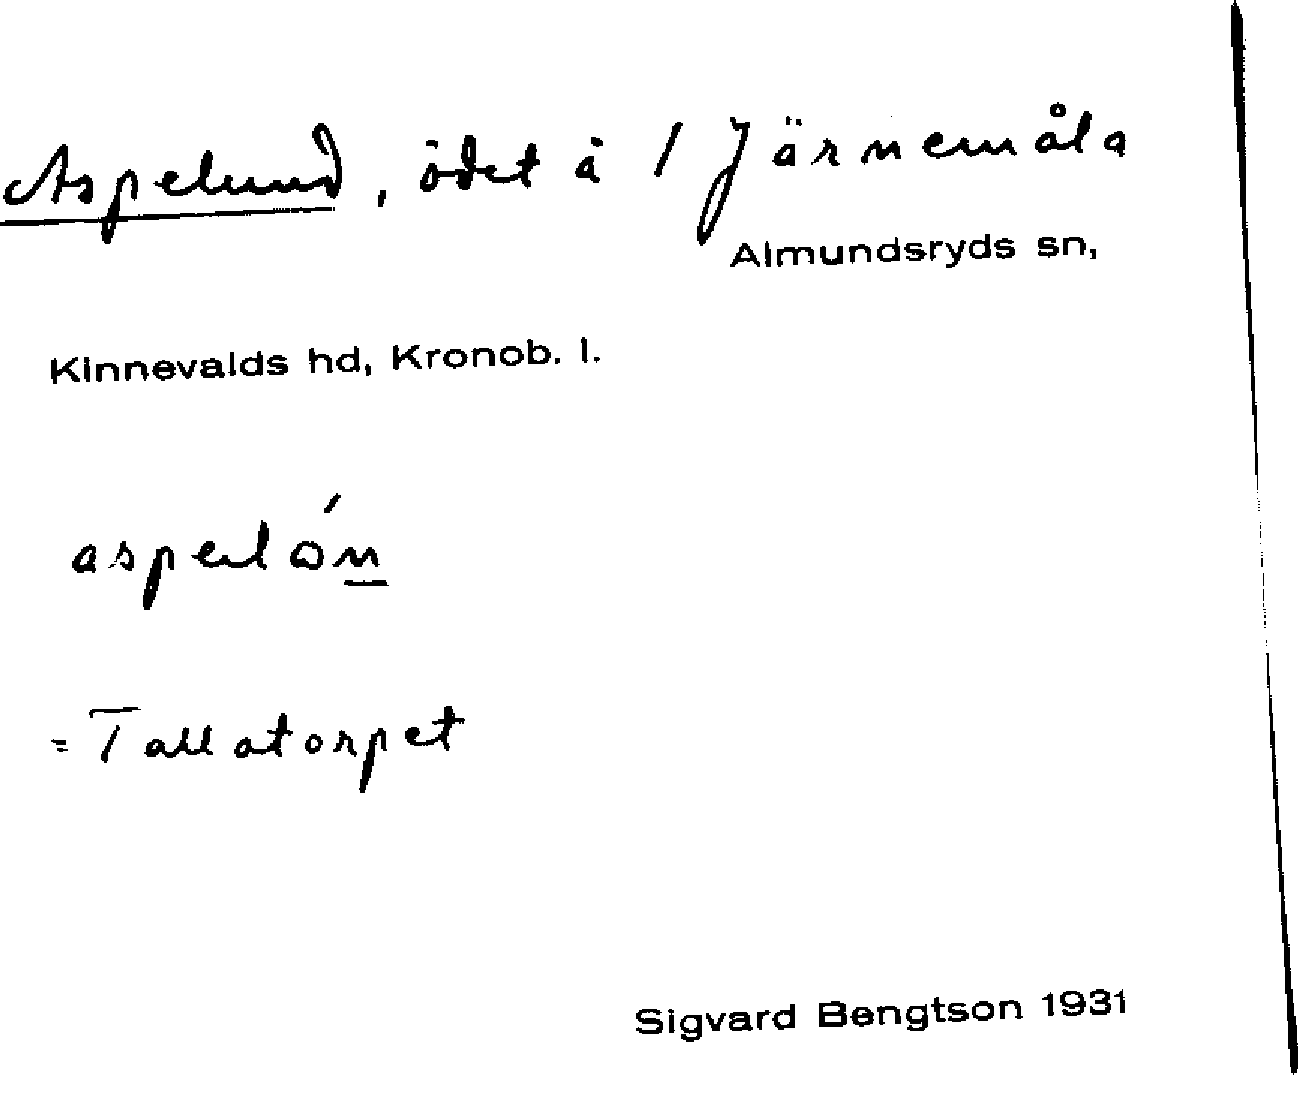 Aspelund, ödet å 1 Järnemåla
Almundsryds sn,
Kinnevalds hd, Kronob. l.
=Tallatorpet
Sigvard Bengtson 1931